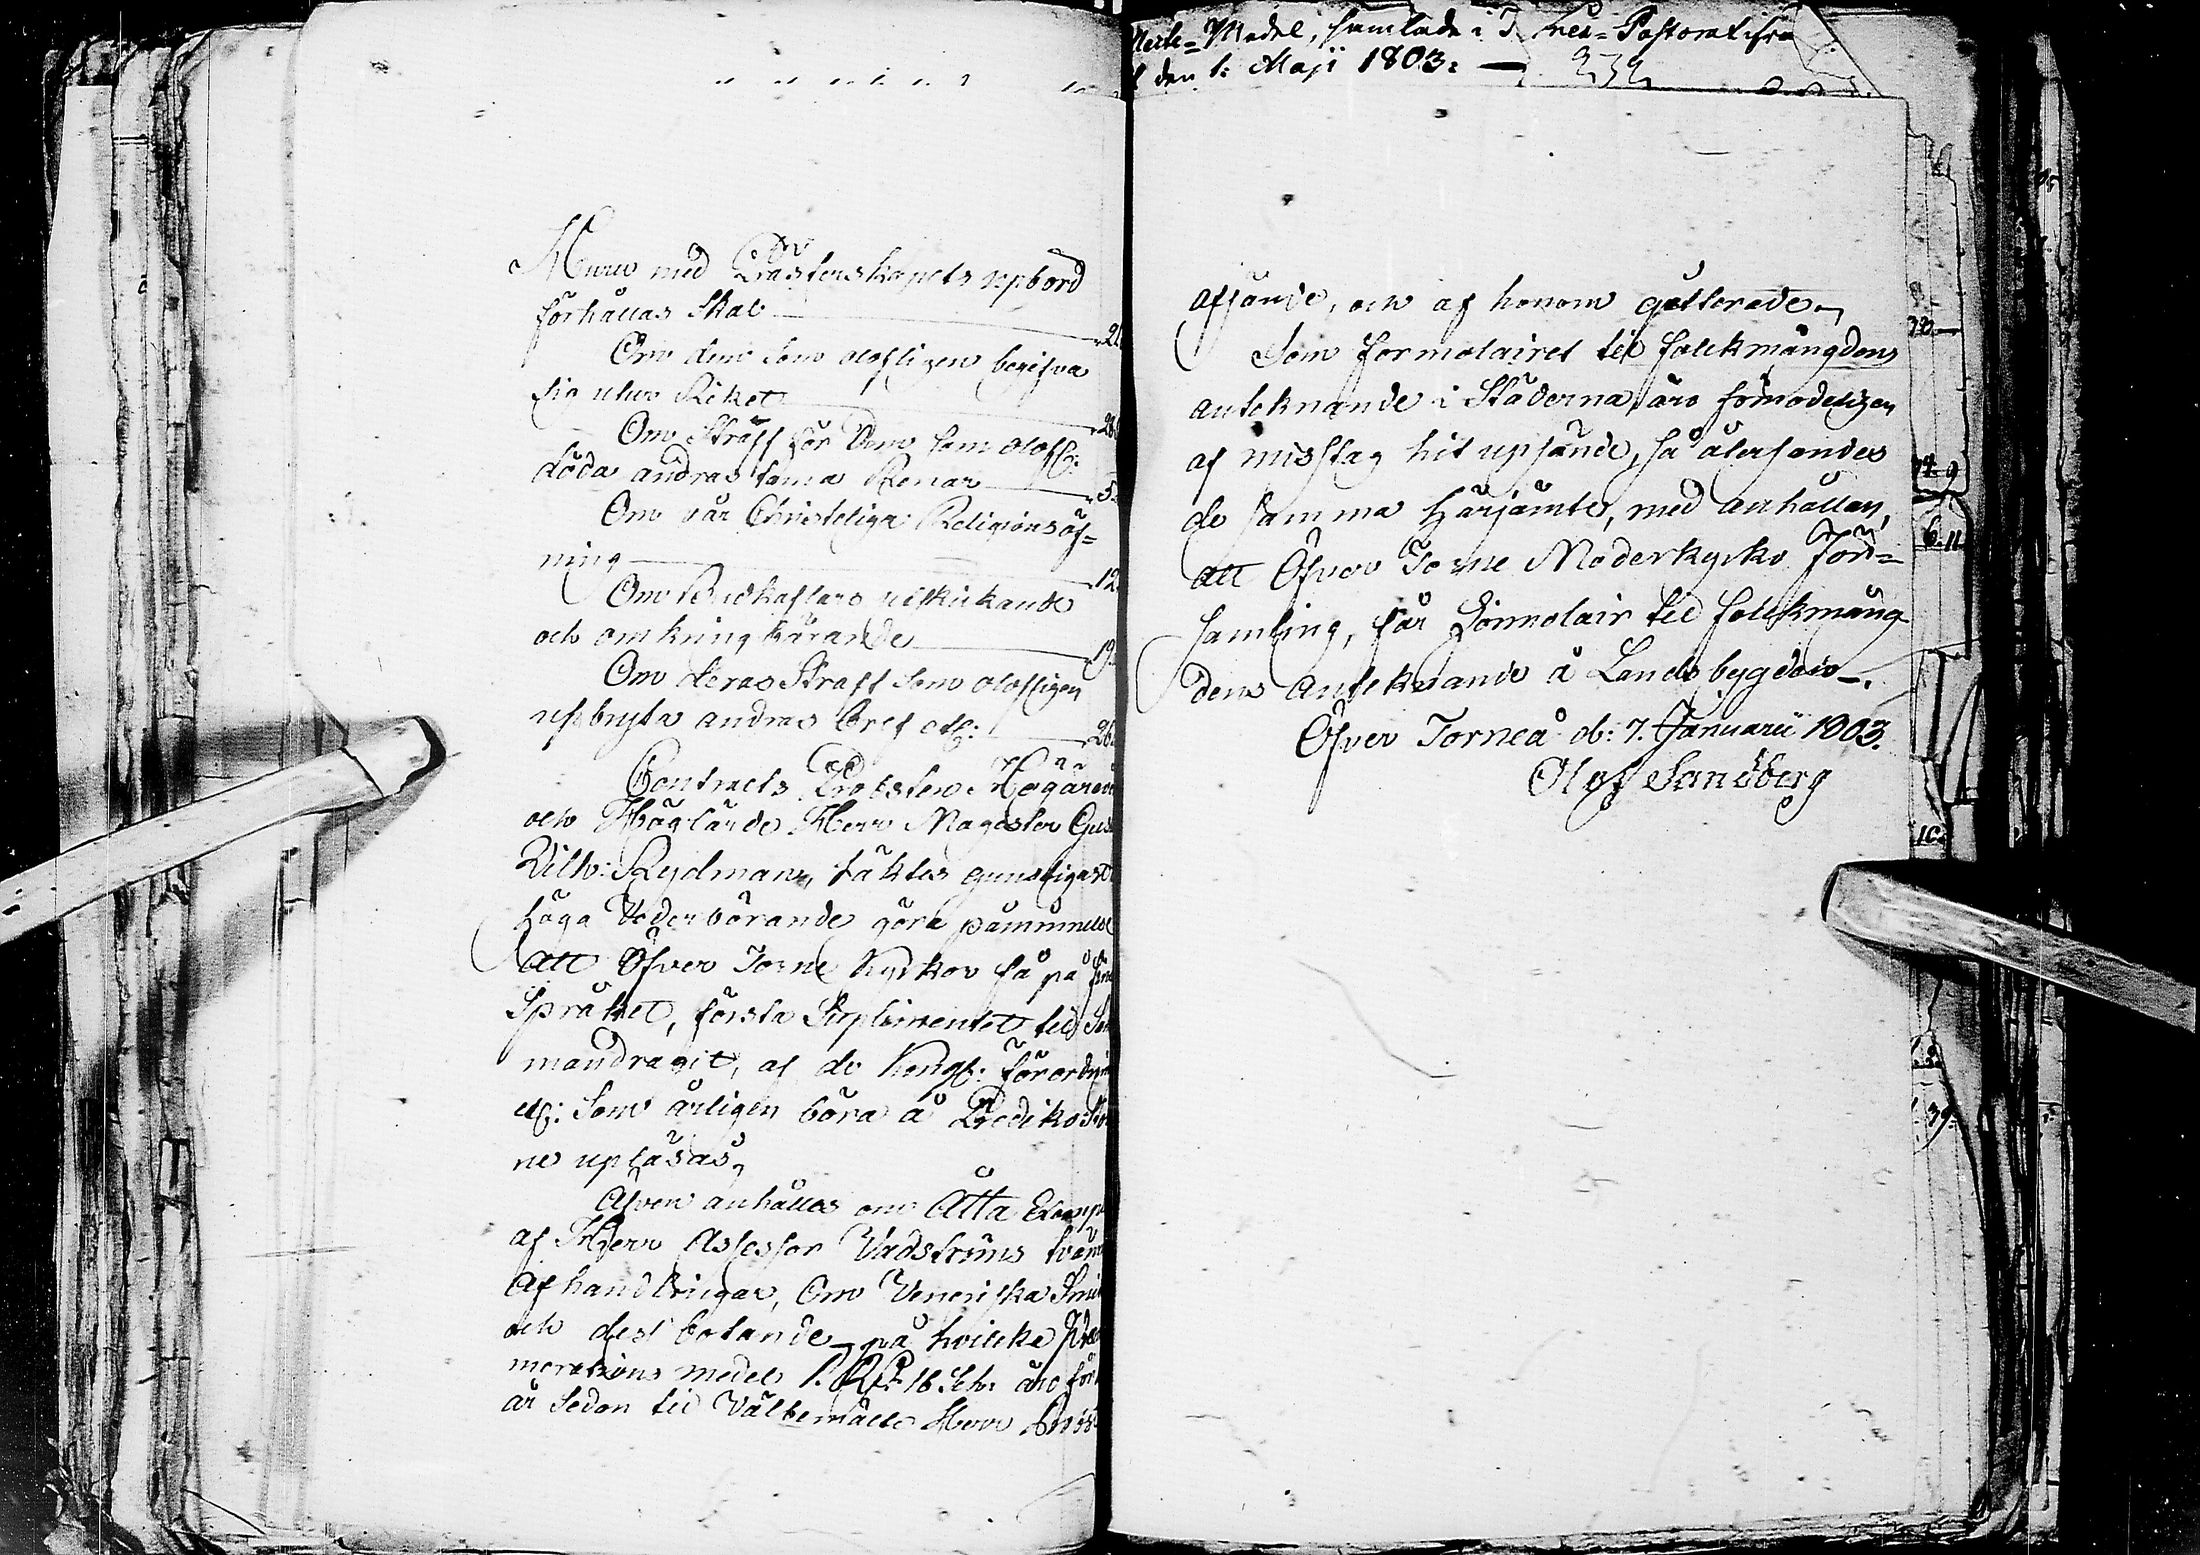 Huru med Prästerskapets upbörd
förhållas Skal 21
Om dem Som olofligen begifva
sig utur Riket 28
Om Straff för Dem som olofl:
döda andras tama Renar 5
Om vår Christeliga Religionsöf=
ning 12
Om Budkaflars utskickande
och omkring bärande 19
Om deras Straff som olofligen
upbryta andras bref etc: 26
Contracts Probsten Högärev
och Höglärde Herr Magister Gus
Vilh: Rydman, täktes gunstigast
höga Vederbörande göra påminnelse
att Öfver Torne Kyrkor få på fin
Språket, första Suplimentet til
mandragit, af de Kongl: förordn
etc: Som årligen böra å Prediko
ne upläsas,
Äfven anhålles om Åtta Exemp
af Herr Assessor Vadströms
Afhandlingar, Om Veneriska
och dess botande, på hvilcka
merations medel 1. Rdr 16 Sch: äro för
år sedan til Välbemälte Herr
Medel, samlade i Pastorat ifrån
den 1: Maji 1803:
afsände, och af honom qvitterade,
Som formulairet til folckmängdens
anteknande i Städerna äro förmodeligen
af misstag hit upsände, så återsändes
de samma härjämte, med anhållan,
att Öfver Torne Moderkyrko För=
samling, får Formulair til folckmäng
dens anteknande å Landsbygden.
Öfver Torneå d: 7. Januarii 1803.
Olof Sandberg